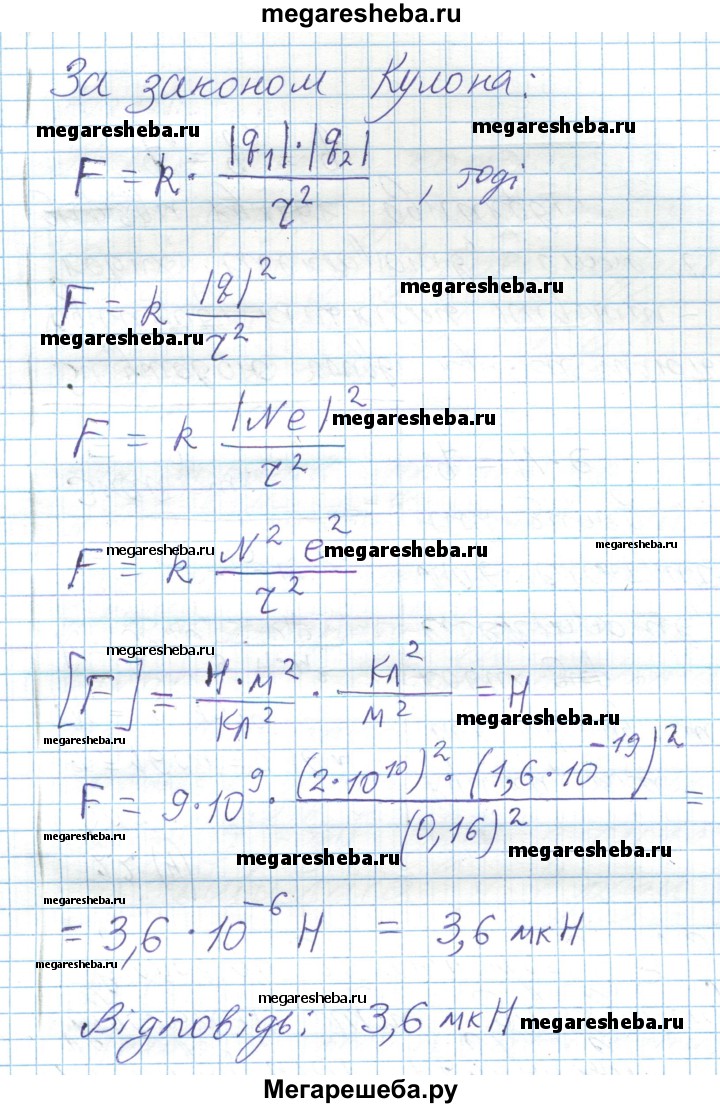 megaresheba.ru
За законом Кулона:
megaresheba.ru megaresheba.ru
F = k · |q₁|·|q₂| / r² , тоді
megaresheba.ru
F = k |q|² / r²
megaresheba.ru
F = k |Ne|² / r²
megaresheba.ru
megaresheba.ru megaresheba.ru megaresheba.ru
F = k N² e² / r²
megaresheba.ru
[F] = Н·м² / Кл² · Кл² / м² = Н
megaresheba.ru megaresheba.ru
F = 9·10⁹ · (2·10¹⁰)² · (1,6·10⁻¹⁹)² / (0,16)² =
megaresheba.ru megaresheba.ru megaresheba.ru
megaresheba.ru
= 3,6 · 10⁻⁶ Н = 3,6 мкН
megaresheba.ru
megaresheba.ru
Відповідь: 3,6 мкН
megaresheba.ru
Мегарешеба.ру